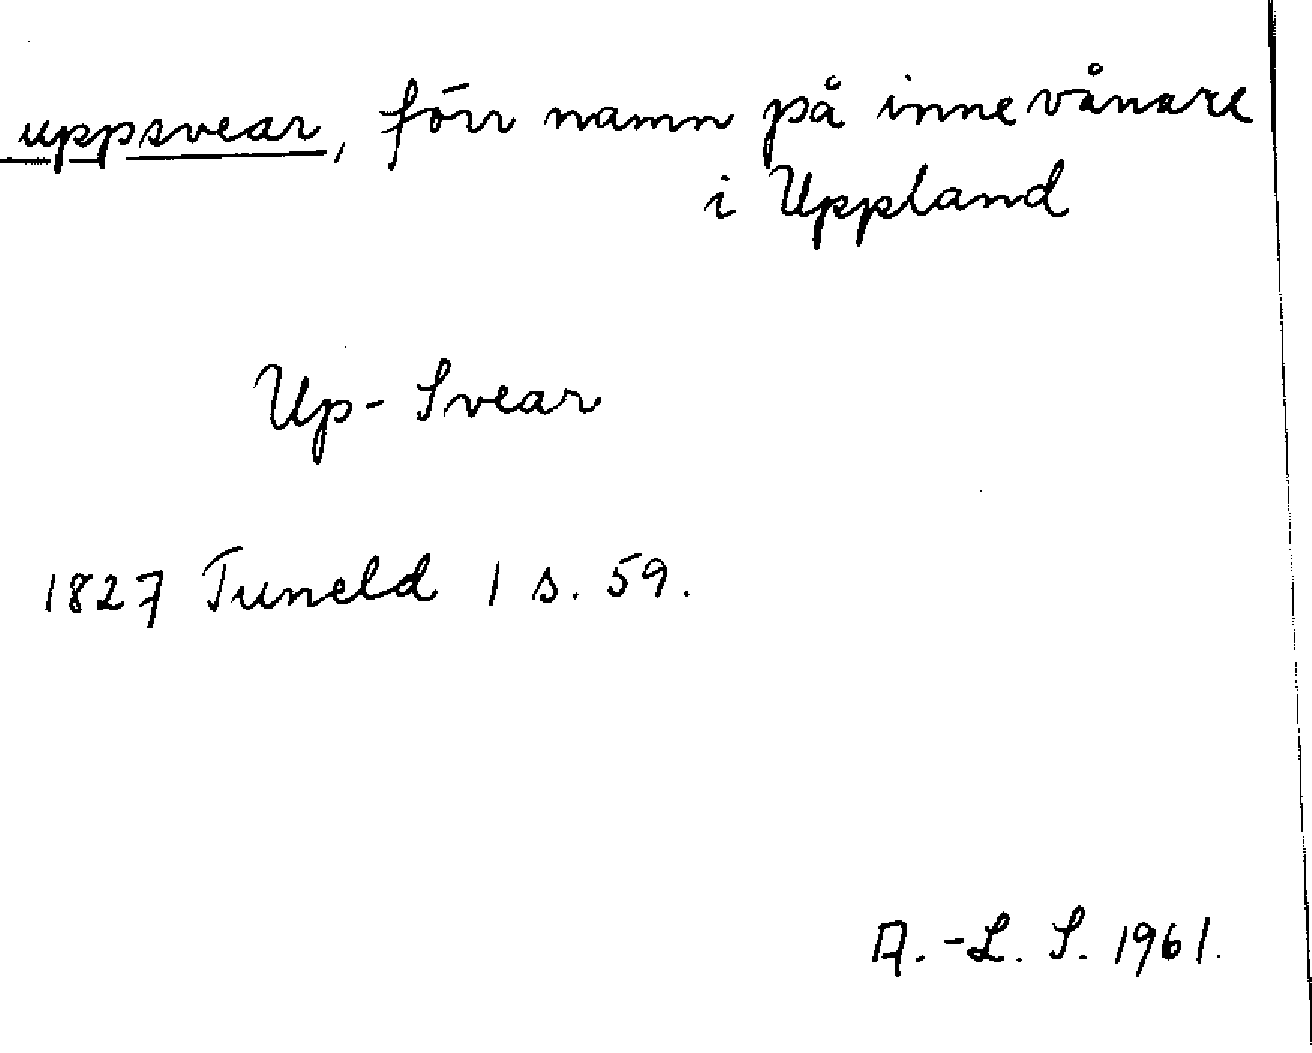 uppsvear, förr namn på innevånare
i Uppland
Up-Svear
1827 Tuneld 1 s. 59.
A.-L. S. 1961.